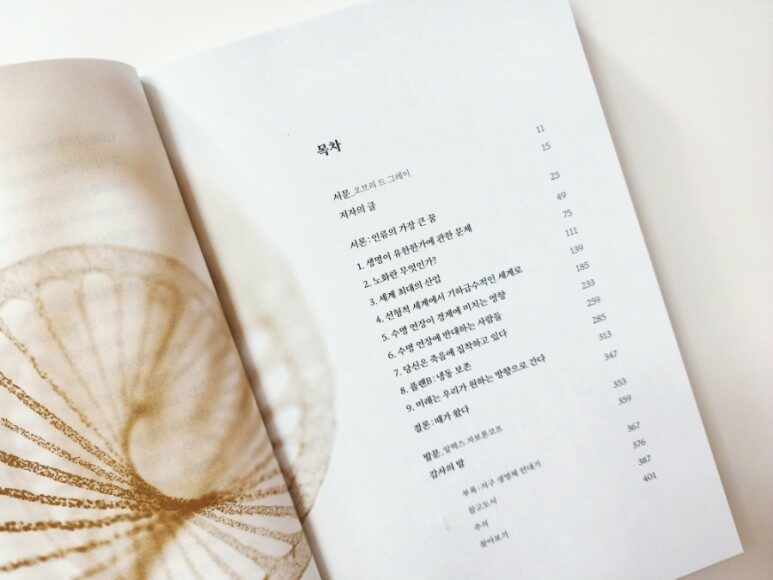 목차
서문_오브리 드 그레이 11
저자의 글 15
서론 : 인류의 가장 큰 꿈 25
1. 생명이 유한한가에 관한 문제 49
2. 노화란 무엇인가? 75
3. 세계 최대의 산업 111
4. 선형적 세계에서 기하급수적인 세계로 139
5. 수명 연장이 경제에 미치는 영향 185
6. 수명 연장에 반대하는 사람들 233
7. 당신은 죽음에 집착하고 있다 259
8. 플랜B : 냉동 보존 285
9. 미래는 우리가 원하는 방향으로 간다 313
결론 : 때가 왔다 347
발문_알렉스 자보론코프 353
감사의 말 359
부록 : 지구 생명체 연대기 367
참고도서 376
주석 387
찾아보기 401